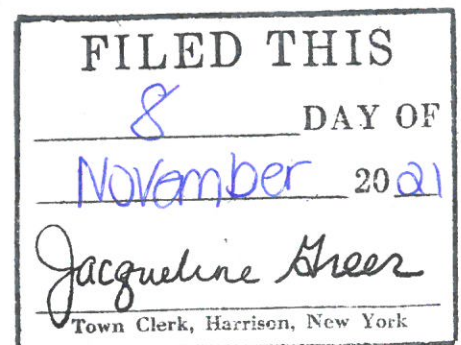 FILED THIS
8 DAY OF
November 20 21
Jacqueline Greer
Town Clerk, Harrison, New York